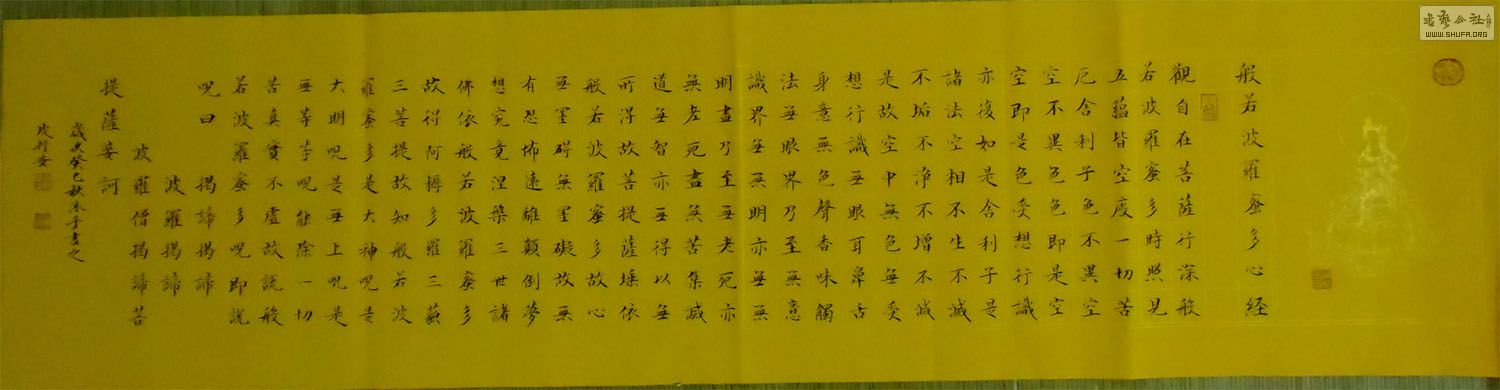 般若波羅蜜多心経
觀自在菩薩行深般
若波羅蜜多時照見
五蘊皆空度一切苦
厄舍利子色不異空
空不異色色即是空
空即是色受想行識
亦復如是舍利子是
諸法空相不生不滅
不垢不净不增不減
是故空中無色無受
想行識無眼耳鼻舌
身意無色聲香味觸
法無眼界乃至無意
識界無無明亦無無
明盡乃至無老死亦
無老死盡無苦集滅
道無智亦無得以無
所得故菩提薩埵依
般若波羅蜜多故心
無罣碍無罣礙故無
有恐怖遠離顛倒夢
想究竟涅槃三世諸
佛依般若波羅蜜多
故得阿耨多羅三藐
三菩提故知般若波
羅蜜多是大神呪是
大明呪是無上呪是
無等等呪能除一切
苦真實不虛故說般
若波羅蜜多呪即說
呪曰 揭諦揭諦
波羅揭諦
波羅僧揭諦菩
提薩婆訶
歲次癸巳秋書之
書藝公社
WWW.SHUFA.ORG